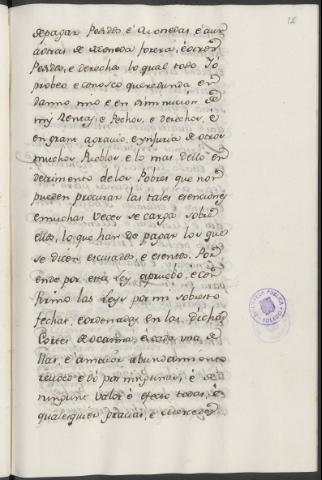 12
de pagar Pedidos, é Monedas, é aun
á otras de Moneda forera, é otros
Pedidos, e derechos lo qual todo Yo
probeo, e conosco que redunda en
danno mio e en diminucion de
mis Rentas, e Pechos, e derechos, é
en gran agravio, e ynjuria de otros
muchos Pueblos, e lo mas dello en
detrimento de los Pobres que non
pueden procurar las tales esenciones
e muchas veces se carga sobre
ellos, lo que han de pagar los que
se dicen escusados, e esentos. Por
ende por esta Ley apruebo, é con
firmo las Leyes por mi sobresto
fechas, e ordenadas en las dichas
Cortes de Ocanna, é cada una de
llas, e á mayor abundamiento
revoco e dó por ningunas, é de
ningunt valor é efecto todas, é
qualesquier gracias, é mercedes
BIBLIOTECA PUBLICA